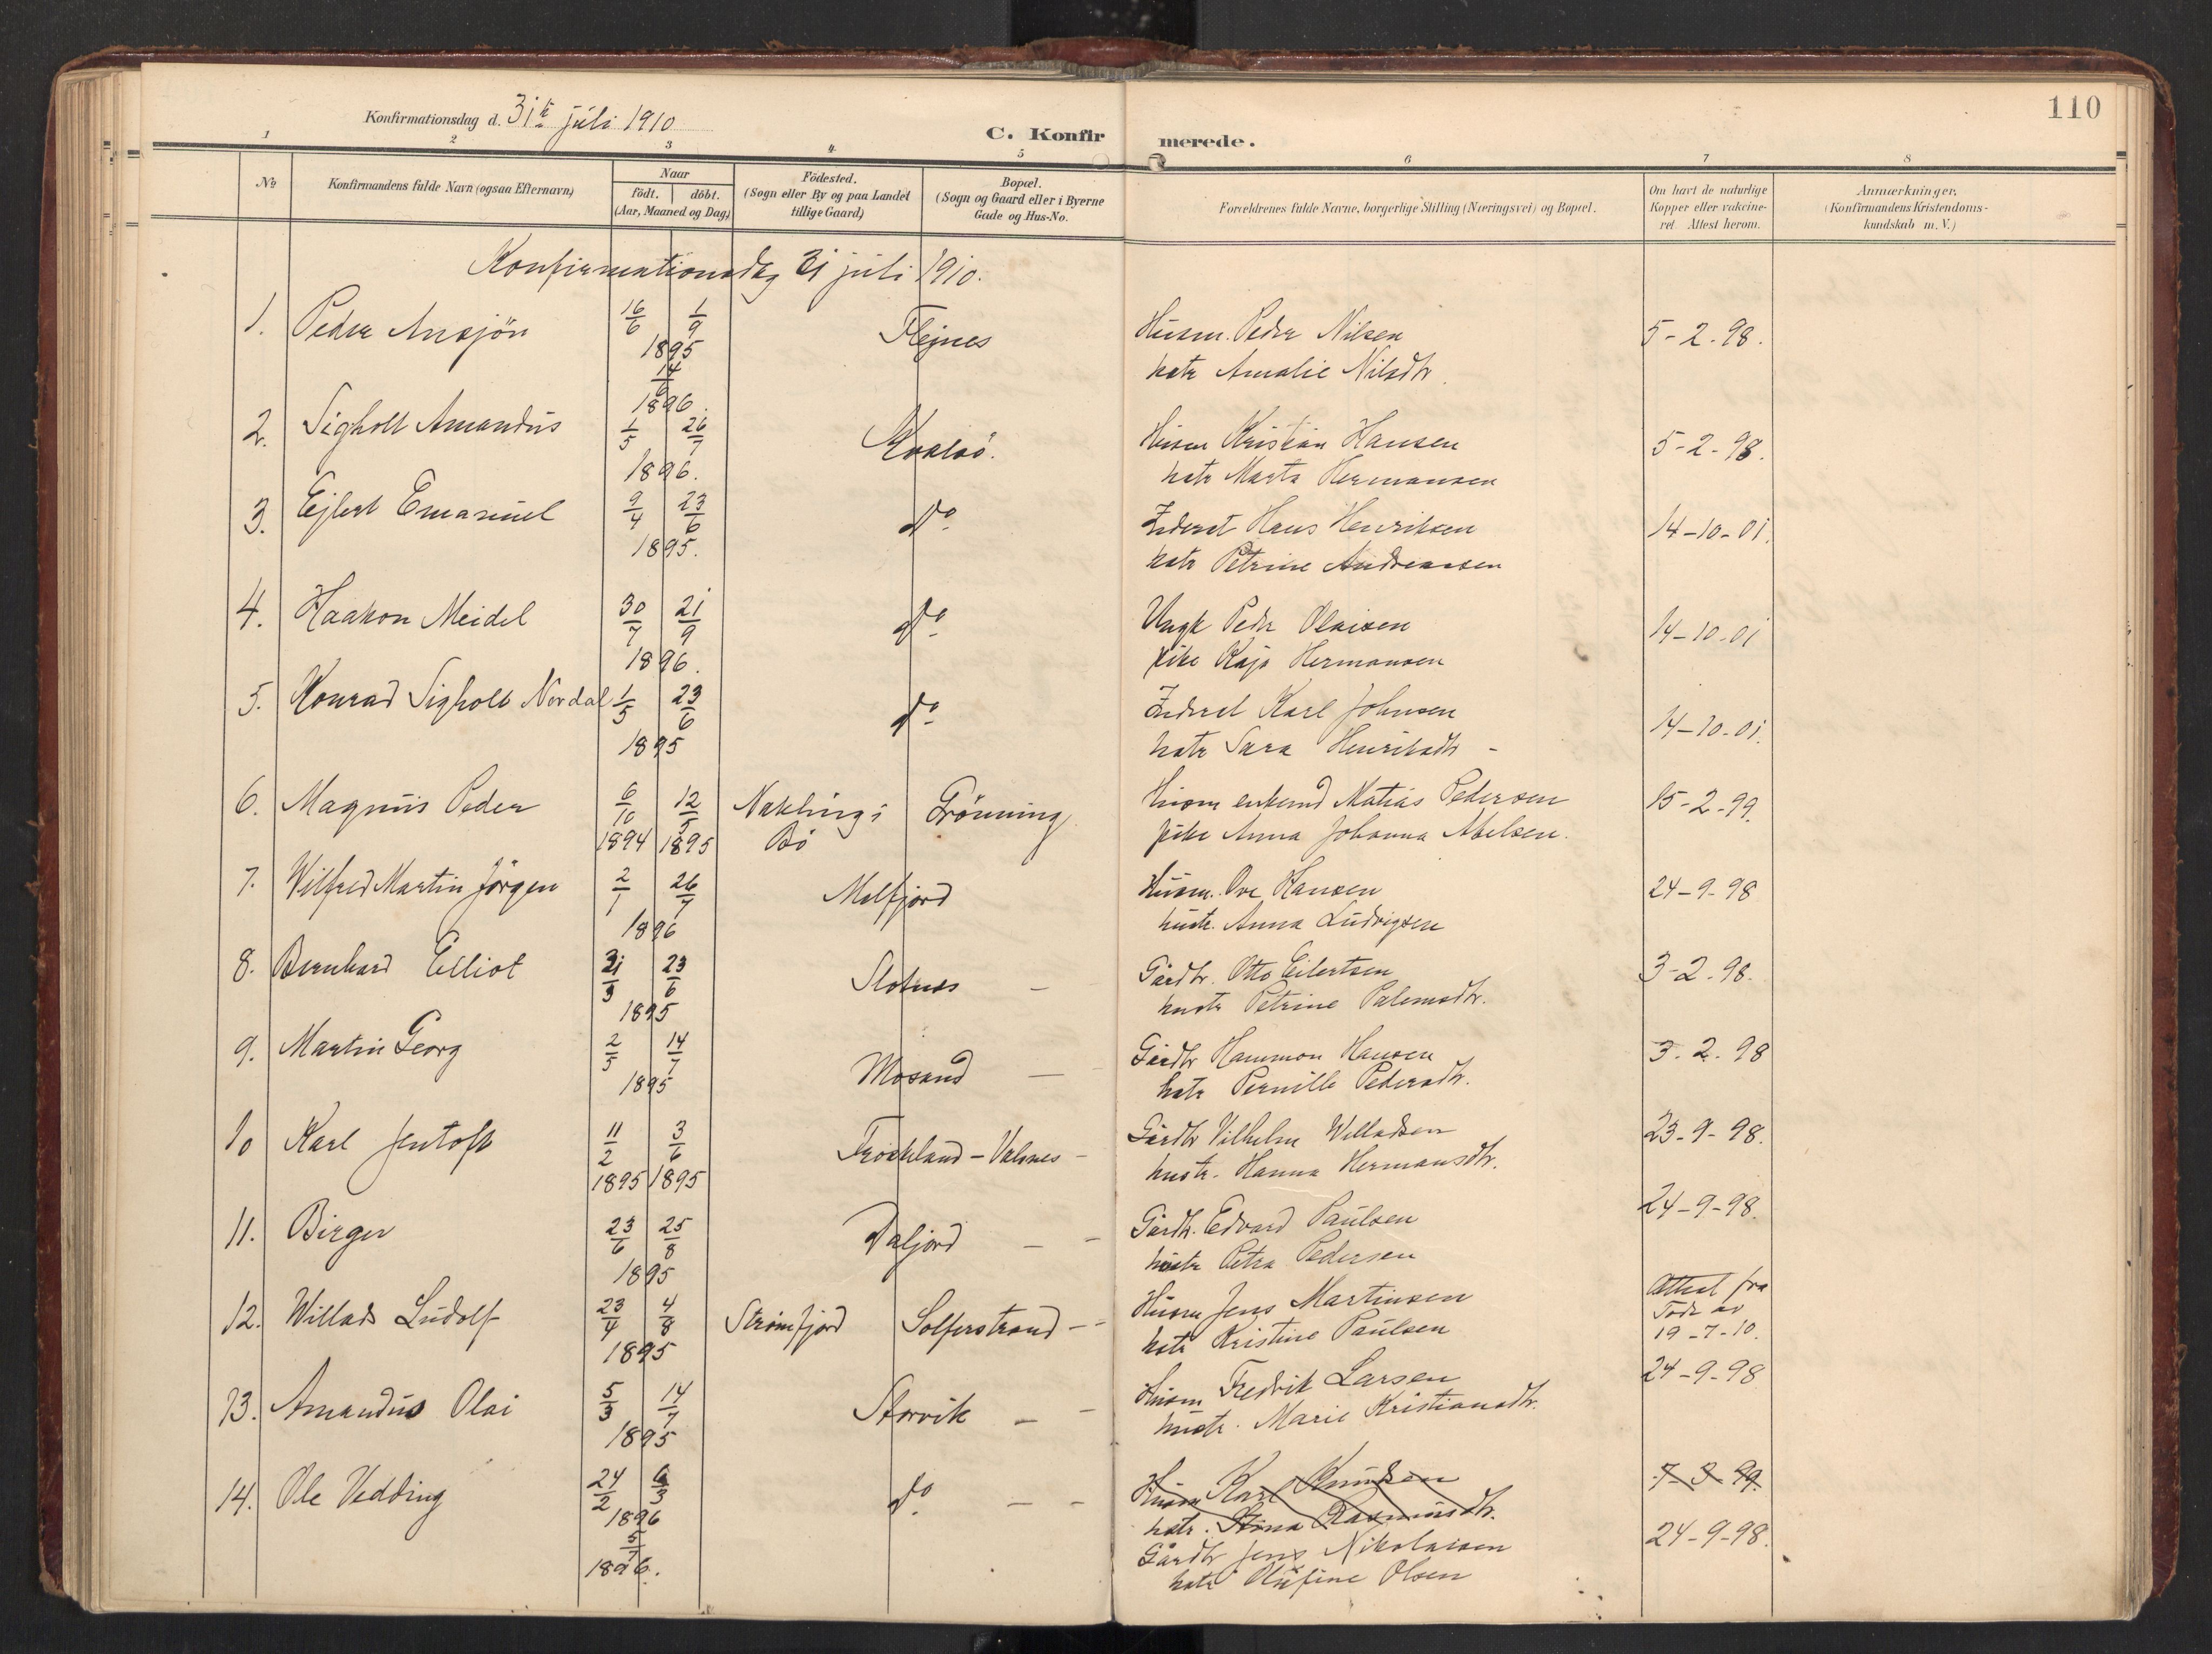 110
Konfirmationsdag d. 31te juli 1910
C. Konfirmerede.
1 2 3 4 5 6 7 8
No
Konfirmandens fulde Navn (ogsaa Efternavn)
Naar
født. døbt.
(Aar, Maaned og Dag)
Födested.
(Sogn eller By og paa Landet
tillige Gaard)
Bopæl.
(Sogn og Gaard eller i Byerne
Gade og Hus-No.
Forældrenes fulde Navne, borgerlige Stilling (Næringsvei) og Bopæl.
Om havt de naturlige
Kopper eller vakcine-
ret. Attest herom.
Anmærkninger.
(Konfirmandens Kristendoms-
kundskab m. V.)
Konfirmationsdag 31 juli 1910.
1. Peder Ansjön 16/6 1/9 1895 Flejnes Husm. Peder Nilsen 5-2-98.
14/6 1896. hstr Amalie Nilsdtr.
2. Sigholt Amandus 1/5 26/7 1896. Kvalsö. Husm Kristian Hansen 5-2-98.
hstr Marta Hermansen
3. Ejlert Emanuel 9/4 23/6 1895. do Inderst Hans Henriksen 14-10-01.
hstr Petrine Andreassen
4. Haakon Meidel 30/7 21/9 1896. do Ungk Peder Olaisen 14-10-01
pike Kaja Hermansen
5. Konrad Sigholt Nordal 1/5 23/6 1895 do Inderst Karl Johnsen 14-10-01.
hstr Sara Henriksdtr -
6. Magnus Peder 6/10 1894 12/5 1895 Nykling i Bö Grönning Husm enkemd Matias Pedersen 15-2-99.
pike Anna Johanna Abelsen.
7. Wilfred Martin Jörgen 2/1 26/7 1896 Melfjord Husm. Ove Hansen 24-9-98
hustr. Anna Ludvigsen
8. Bernhard Elliot 31/3 23/6 1895 Slotnes - Gårdbr. Otto Eilertsen 3-2-98.
hustr Petrine Palmesdtr.
9. Martin Georg 2/5 14/7 1895 Mosand - Gårdbr Hammon Hansen 3-2-98
hstr Pernille Pedersdtr.
10 Karl Jentoft 11/2 1895 3/6 1895 Froskland - Valsnes - Gårdbr Vilhelm Willadsen 23-9-98.
hustr. Hanna Hermansdtr.
11. Birger 23/6 25/8 1895 Daljord - - Gårdbr. Edvard Paulsen 24-9-98.
hustr Petra Pedersen
12. Willads Ludolf 23/4 4/8 1895 Strömfjord Solferstrand - - Husm Jens Martinsen Attest fra
hstr Kristine Paulsen 19-7-10.
13. Amandus Olai 5/3 14/7 1895 Storvik - - Husm Fredrik Larsen 24-9-98
hustr. Marie Kristiansdtr.
14. Ole Vedding 24/2 6/3 1896 do - - Husm Karl Knudsen 7-3-99.
hstr. Stina Rasmusdtr.
5/7 1896. Gårdbr Jens Nikolaisen 24-9-98.
hstr Olufine Olsen